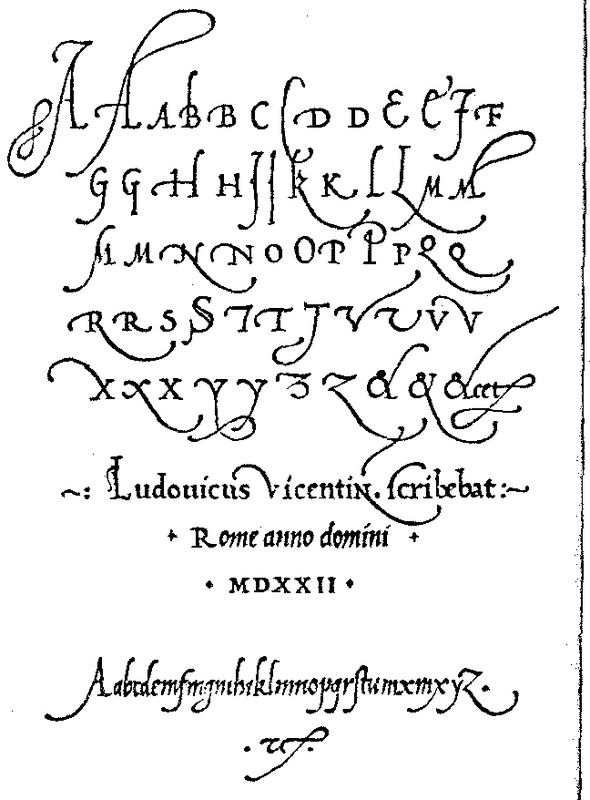 A A A B B C C D D E E F F
G G H H I I K K L L M M
M M N N O O P P P Q Q
R R S S T T T V V V V
X X X Y Y Z Z & & &cet
~: Ludouicus Vicentin. scribebat :~
Rome anno domini
• MDXXII •